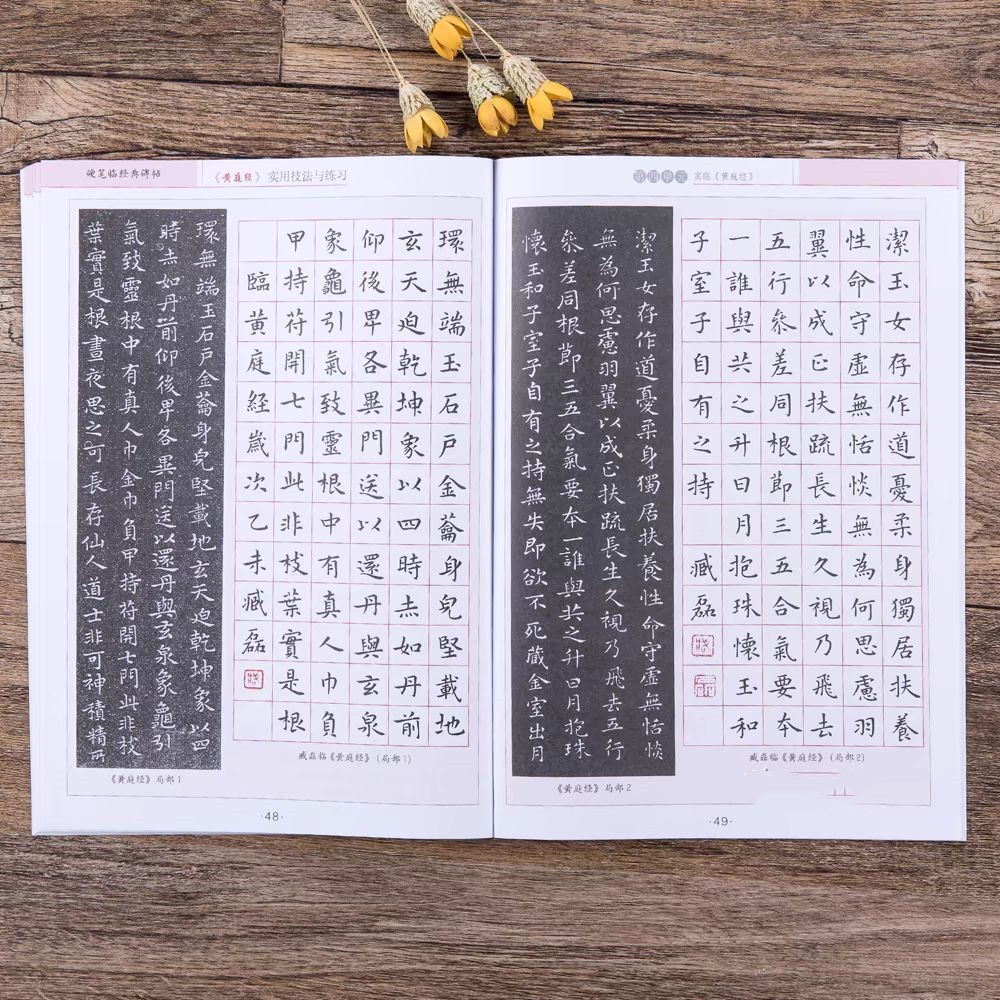 硬笔临经典碑帖
《黄庭经》实用技法与练习
環無端玉石戶金蘥身皃堅載地玄天迫乾坤象以四
時赤如丹前仰後卑各異門送以還丹與玄泉象龜引
氣致靈根中有真人巾金巾負甲持符開七門此非枝
葉實是根晝夜思之可長存仙人道士非可神積精所
《黄庭经》局部1
環無端玉石戶金蘥身皃堅載地
玄天迫乾坤象以四時赤如丹前
仰後卑各異門送以還丹與玄泉
象龜引氣致靈根中有真人巾負
甲持苻開七門此非枝葉實是根
臨黃庭經歲次乙未臧磊
臧磊临《黄庭经》(局部1)
·48·
第四单元 实临《黄庭经》
潔玉女存作道憂柔身獨居扶養性命守虛無恬惔
無為何思慮羽翼以成正扶疏長生久視乃飛去五行
參差同根節三五合氣要本一誰與共之升日月抱珠
懷玉和子室子自有之持無失即欲不死藏金室出月
《黄庭经》局部2
潔玉女存作道憂柔身獨居扶養
性命守虛無恬惔無為何思慮羽
翼以成正扶疏長生久視乃飛去
五行參差同根節三五合氣要本
一誰與共之升日月抱珠懷玉和
子室子自有之持 臧磊
臧磊临《黄庭经》(局部2)
·49·